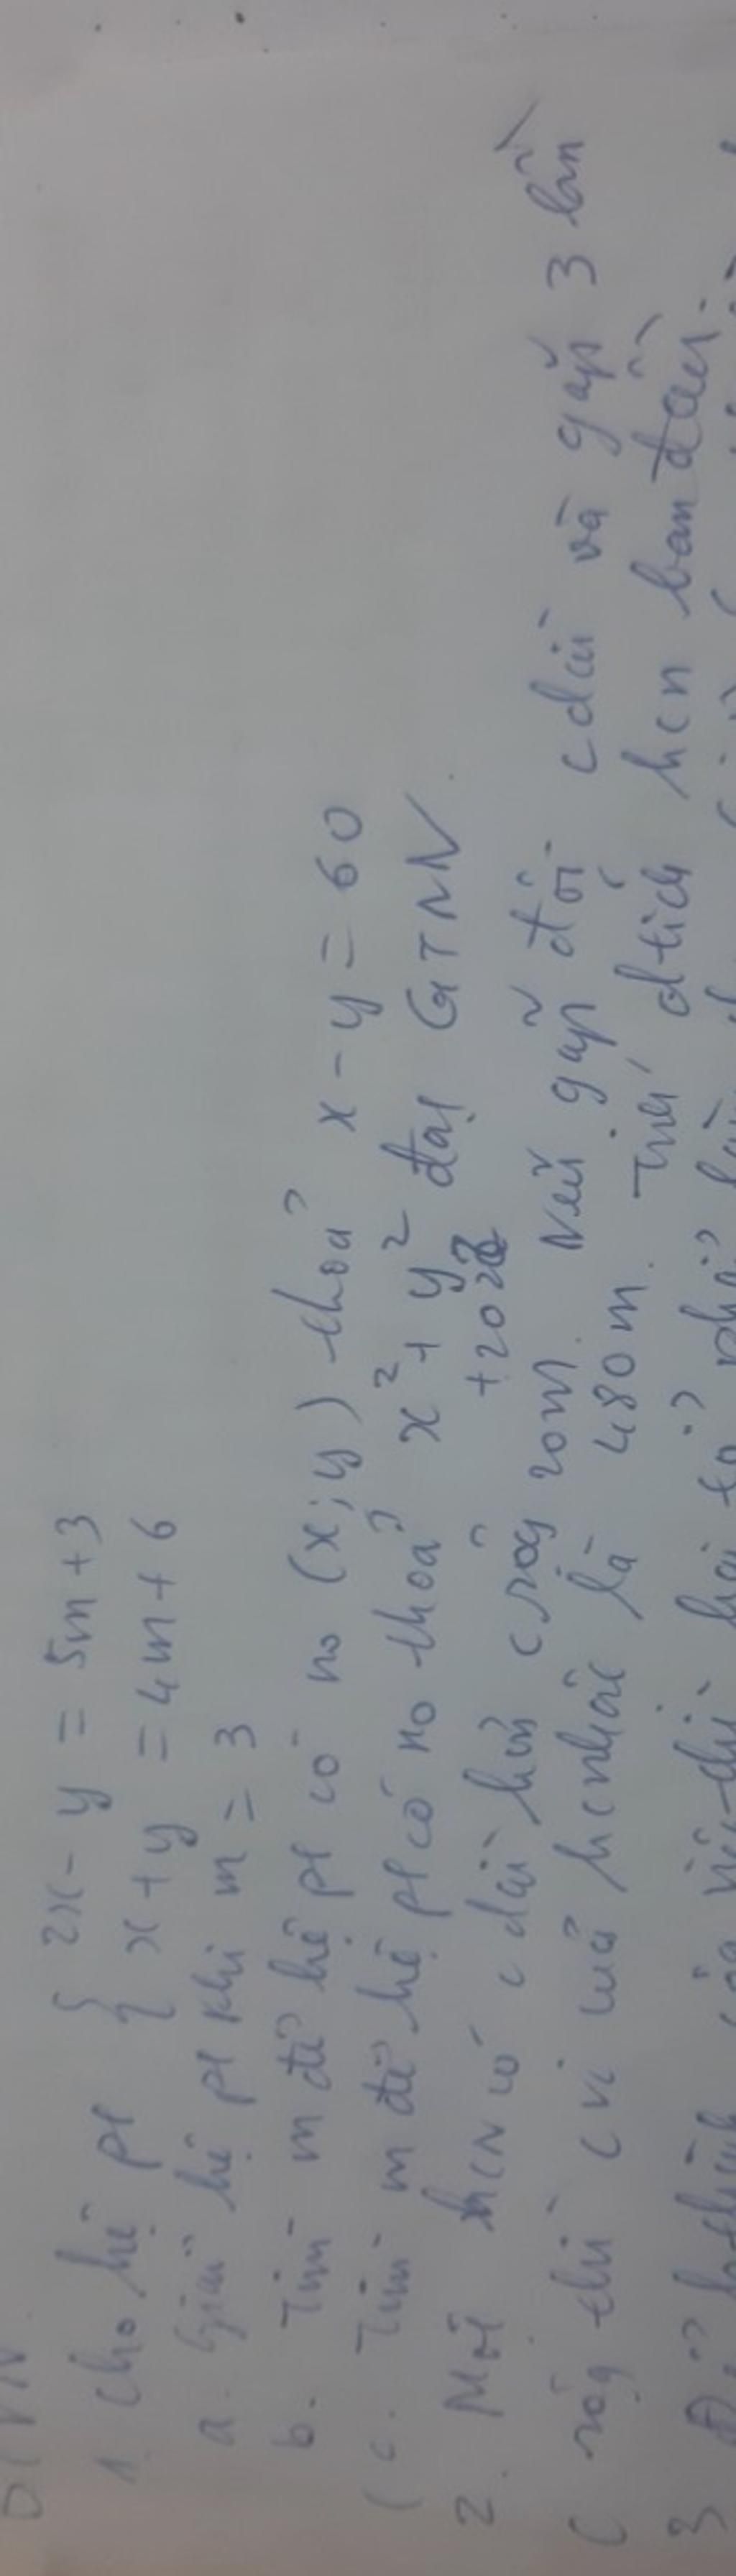 1. Cho hệ pt { 2x - y = 5m + 3
x + y = 4m + 6
a. Giải hệ pt khi m = 3
b. Tìm m để hệ pt có no (x; y) thoả x - y = 60
(c. Tìm m để hệ pt có no thoả x² + y² đạt GTNN.
+ 202
2. Một hcn có c dài hơn c rộg 20m. Nếu gấp đôi c dài và gấp 3 lần
c rộg thì c vi của hcnhật là 480m. Tính dtích hcn ban đầu.
3